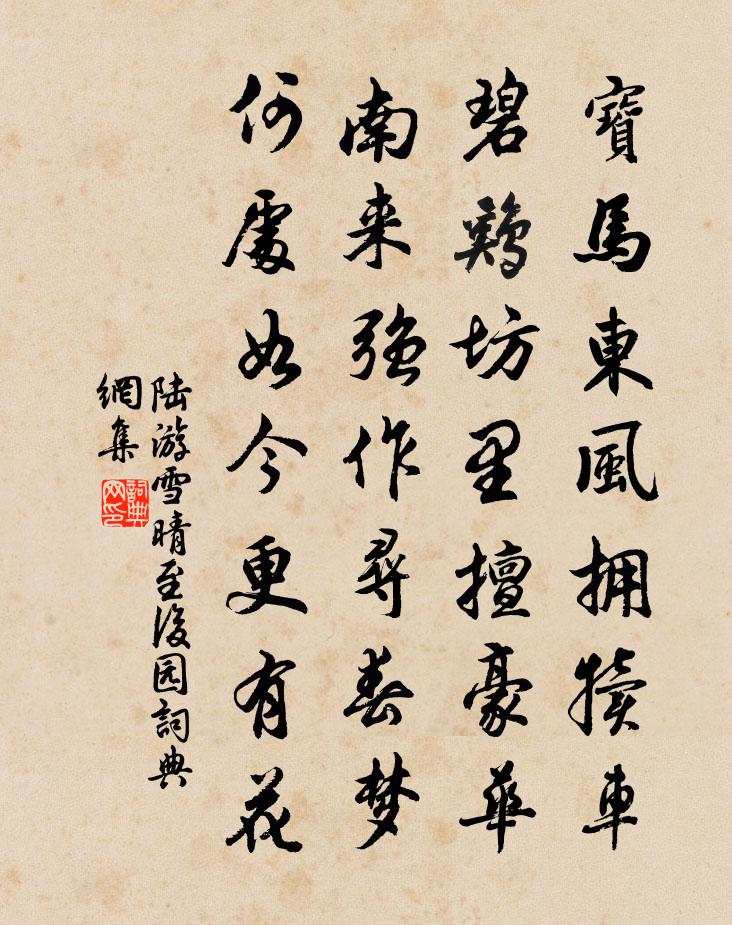 寶馬東風拥犢車
碧鷄坊里擅豪華
南来強作尋春梦
何處如今更有花
陆游雪晴至後园詞典
網集
詞典网印